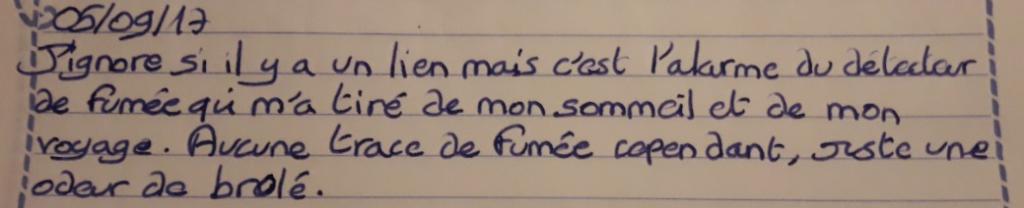 05/09/17
J'ignore si il y a un lien mais c'est l'alarme du détecteur
de fumée qui m'a tiré de mon sommeil et de mon
voyage. Aucune trace de fumée cependant, juste une
odeur de brolé.